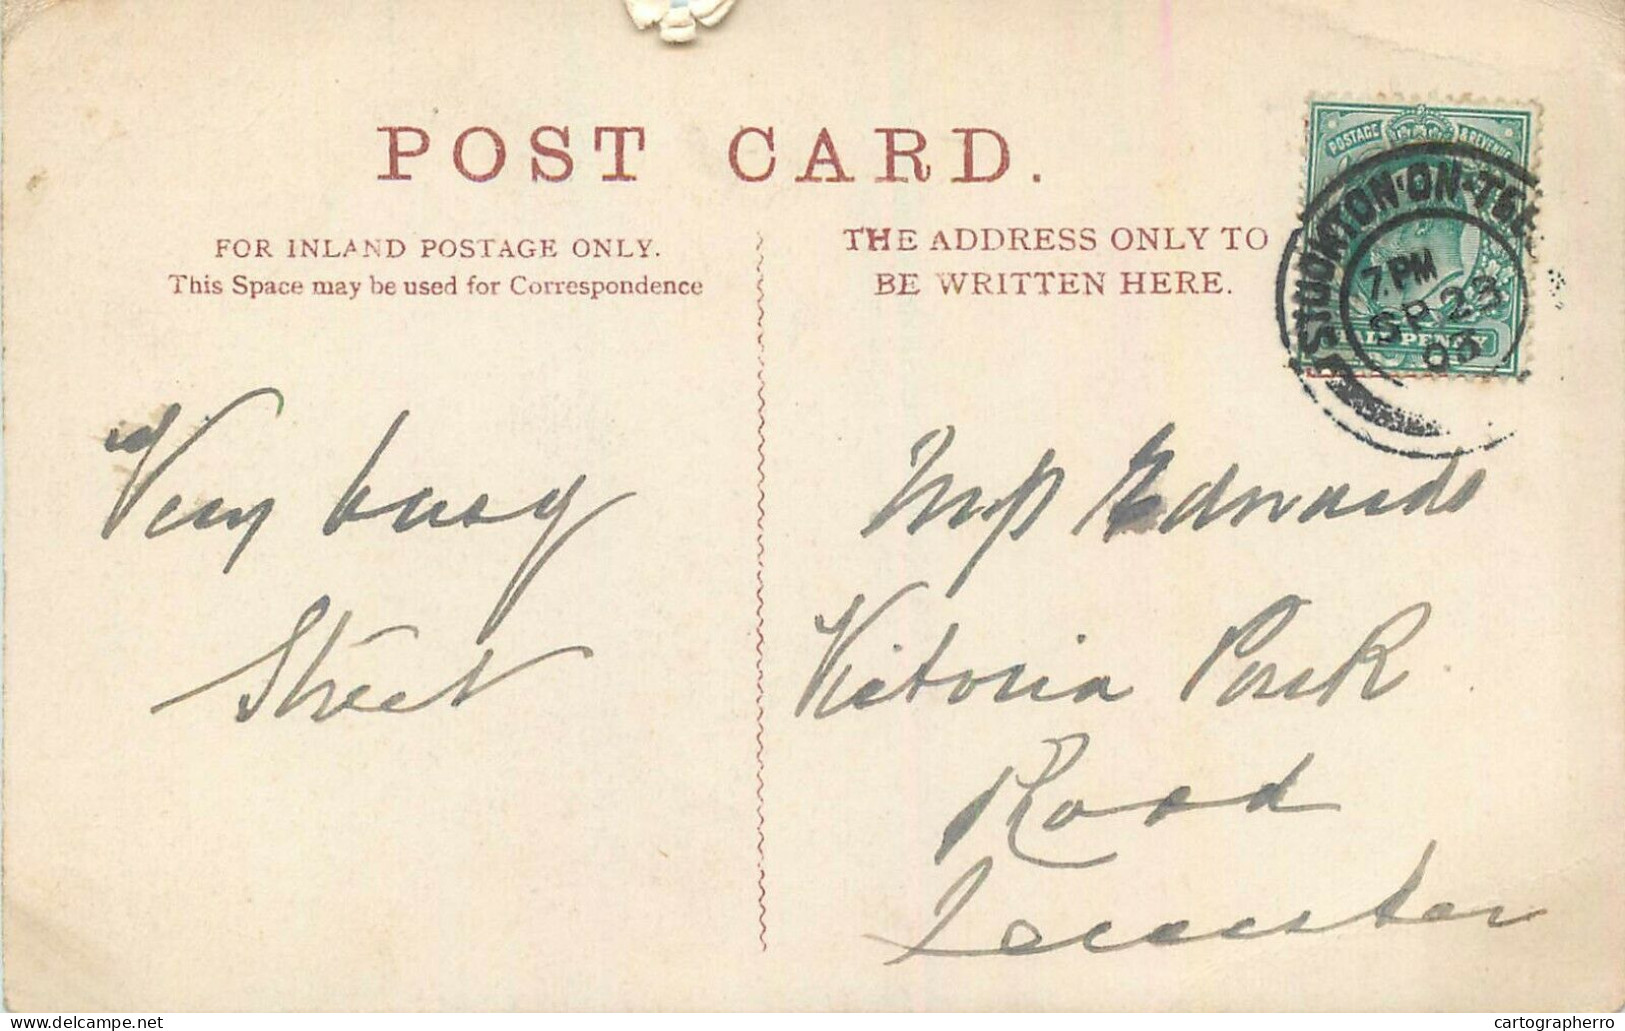 POST CARD.
FOR INLAND POSTAGE ONLY.
This Space may be used for Correspondence
THE ADDRESS ONLY TO
BE WRITTEN HERE.
POSTAGE & REVENUE
STOCKTON-ON-TEE
7. PM
SP 23
03
HALFPENNY
Very busy
Street
Edwards
Victoria Park
Road
Leicester
delcampe.net
cartographerro